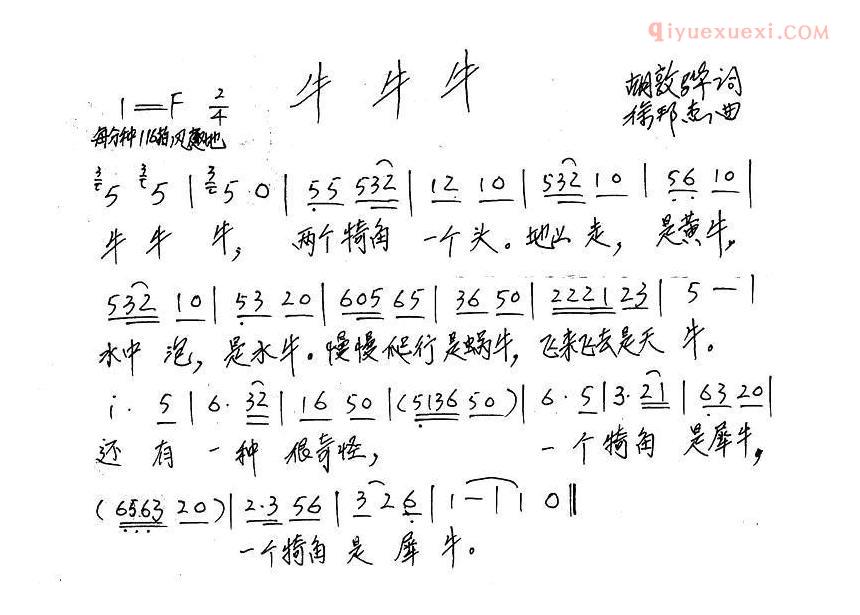 qiyuexuexi.com
牛 牛 牛
1=F 2/4
胡敦骅词
每分种116拍 风趣地
徐邦杰曲
5 5 | 5 0 | 55 532 | 12 10 | 532 10 | 56 10 |
牛 牛 牛, 两个犄角 一个头。地上 走, 是黄牛,
532 10 | 53 20 | 605 65 | 36 50 | 2221 23 | 5 — |
水中 泡, 是水牛。慢慢爬行是蜗牛, 飞来飞去是天 牛。
i· 5 | 6· 32 | 16 50 | (5136 50) | 6· 5 | 3· 21 | 63 20 |
还 有 一 种 很奇怪, 一 个 犄角 是犀牛,
(6563 20) | 2·3 56 | 3 2 6 | 1 — | 1 0 ‖
一个犄角 是 犀 牛。